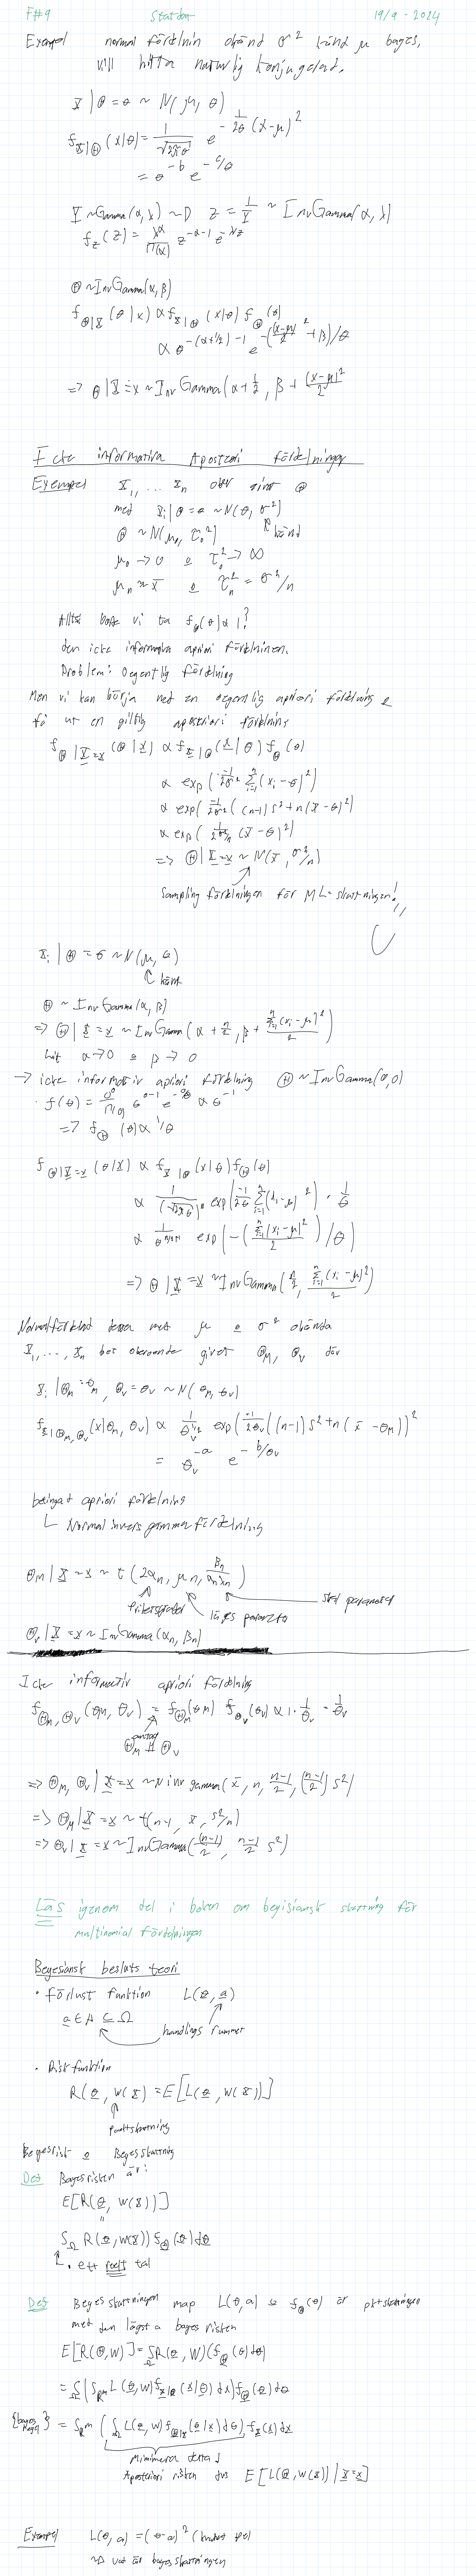 F#9 Statdat 19/9 - 2024
Exempel normal fördelnin okänd σ² känd μ bayes,
vill hitta naturlig konjugerad.
X | Θ = θ ~ N(μ, θ)
f_{X|Θ}(x|θ) = 1/√(2πθ) e^{-1/(2θ) (x-μ)²}
= θ^{-b} e^{-c/θ}
Y ~ Gamma(α, λ) ~D Z = 1/Y ~ InvGamma(α, λ)
f_Z(z) = λ^α/Γ(α) z^{-α-1} e^{-λ/z}
Θ ~ InvGamma(α, β)
f_{Θ|X}(θ|x) ∝ f_{X|Θ}(x|θ) f_Θ(θ)
∝ θ^{-(α+1/2)-1} e^{-((x-μ)²/2 + β)/θ}
=> θ | X = x ~ InvGamma(α + 1/2, β + (x-μ)²/2
Icke informativa Aposteori fördelningar
Exempel X_1, ... X_n ober givet Θ
med X_i | Θ = θ ~ N(θ, σ²)
Θ ~ N(μ_0, τ_0²) känd
μ_0 → 0 o τ_0² → ∞
μ_n ≈ x̄ o τ_n² = σ²/n
Alltså borde vi ta f_Θ(θ) ∝ 1?
den icke informativa apriori fördelninen.
Problem: Oegentlig fördelning
Men vi kan börja med en oegentlig apriori fördelning &
få ut en giltig apostriori fördelning
f_{Θ|X=x}(θ|x) ∝ f_{X|Θ}(x|θ) f_Θ(θ)
∝ exp(-1/(2σ²) Σ_{i=1}^n (x_i - θ)²)
∝ exp(-1/(2σ²) ((n-1)s² + n(x̄ - θ)²)
∝ exp(-1/(2σ²/n) (x̄ - θ)²)
=> Θ | X = x ~ N(x̄, σ²/n)
Sampling fördelningen för ML-skattningen!
X_i | Θ = θ ~ N(μ, θ)
känt
Θ ~ InvGamma(α, β)
=> Θ | X = x ~ InvGamma(α + n/2, β + Σ_{i=1}^n (x_i - μ)²/2)
Låt α → 0 o β → 0
→ icke informativ apriori fördelning Θ ~ InvGamma(0,0)
f(θ) = 0⁰/Γ(0) θ^{0-1} e^{-0/θ} ∝ θ^{-1}
=> f_Θ(θ) ∝ 1/θ
f_{Θ|X=x}(θ|x) ∝ f_{X|Θ}(x|θ) f_Θ(θ)
∝ 1/(√(2πθ))^n exp(-1/(2θ) Σ_{i=1}^n (x_i - μ)²) · 1/θ
∝ 1/θ^{n/2+1} exp(-(Σ_{i=1}^n (x_i - μ)²/2)/θ)
=> Θ | X = x ~ InvGamma(n/2, Σ_{i=1}^n (x_i - μ)²/2)
Normalfördelad data med μ o σ² okända
X_1, ..., X_n bet oberoende givet Θ_M, Θ_V där
X_i | Θ_M = θ_M, Θ_V = θ_V ~ N(θ_M, θ_V)
f_{X|Θ_M,Θ_V}(x|θ_M, θ_V) ∝ 1/θ_V^{n/2} exp(-1/(2θ_V) ((n-1)s² + n(x̄ - θ_M))²
= θ_V^{-a} e^{-b/θ_V}
betingad apriori fördelning
Normal invers gamma fördelning
Θ_M | X = x ~ t(2α_n, μ_n, β_n/(α_n λ_n))
frihetsgrader läges paramter skal parameter
Θ_V | X = x ~ InvGamma(α_n, β_n)
Icke informativ apriori fördelning
f_{Θ_M,Θ_V}(θ_M, θ_V) = f_{Θ_M}(θ_M) f_{Θ_V}(θ_V) ∝ 1 · 1/θ_V = 1/θ_V
antag
Θ_M ⊥⊥ Θ_V
=> Θ_M, Θ_V | X = x ~ N inv gamma(x̄, n, (n-1)/2, ((n-1)/2) s²)
=> Θ_M | X = x ~ t(n-1, x̄, s²/n)
=> Θ_V | X = x ~ InvGamma((n-1)/2, (n-1)/2 s²)
Läs igenom del i boken om beyisiansk skattning för
multinomial fördelningen
Beyesiansk besluts teori
• Förlust funktion L(θ, a)
a ∈ A ⊆ Ω
handlings rummet
• Riskfunktion
R(θ, W(X)) = E[L(θ, W(X))]
punktskattning
Bayesrisk o Beyesskattning
Def Bayesrisken är:
E[R(Θ, W(X))]
=
∫_Ω R(θ, W(X)) f_Θ(θ) dθ
• ett reellt tal
Def Beyes skattningen map L(θ, a) o f_Θ(θ) är pktskattningen
med den lägst a bayes risken
E[R(Θ, W] = ∫_Ω R(θ, W)(f_Θ(θ) dθ)
= ∫_Ω (∫_{R^m} L(θ, W) f_{X|Θ}(x|θ) dx) f_Θ(θ) dθ
{bayes regel} = ∫_{R^m} (∫_Ω L(θ, W) f_{Θ|X}(θ|x) dθ) f_X(x) dx
Minimera detta!
Aposteriori risken dvs E[L(Θ, W(X)) | X = x]
Exempel L(θ, a) = (θ - a)²
~D vad är bayes skattningen